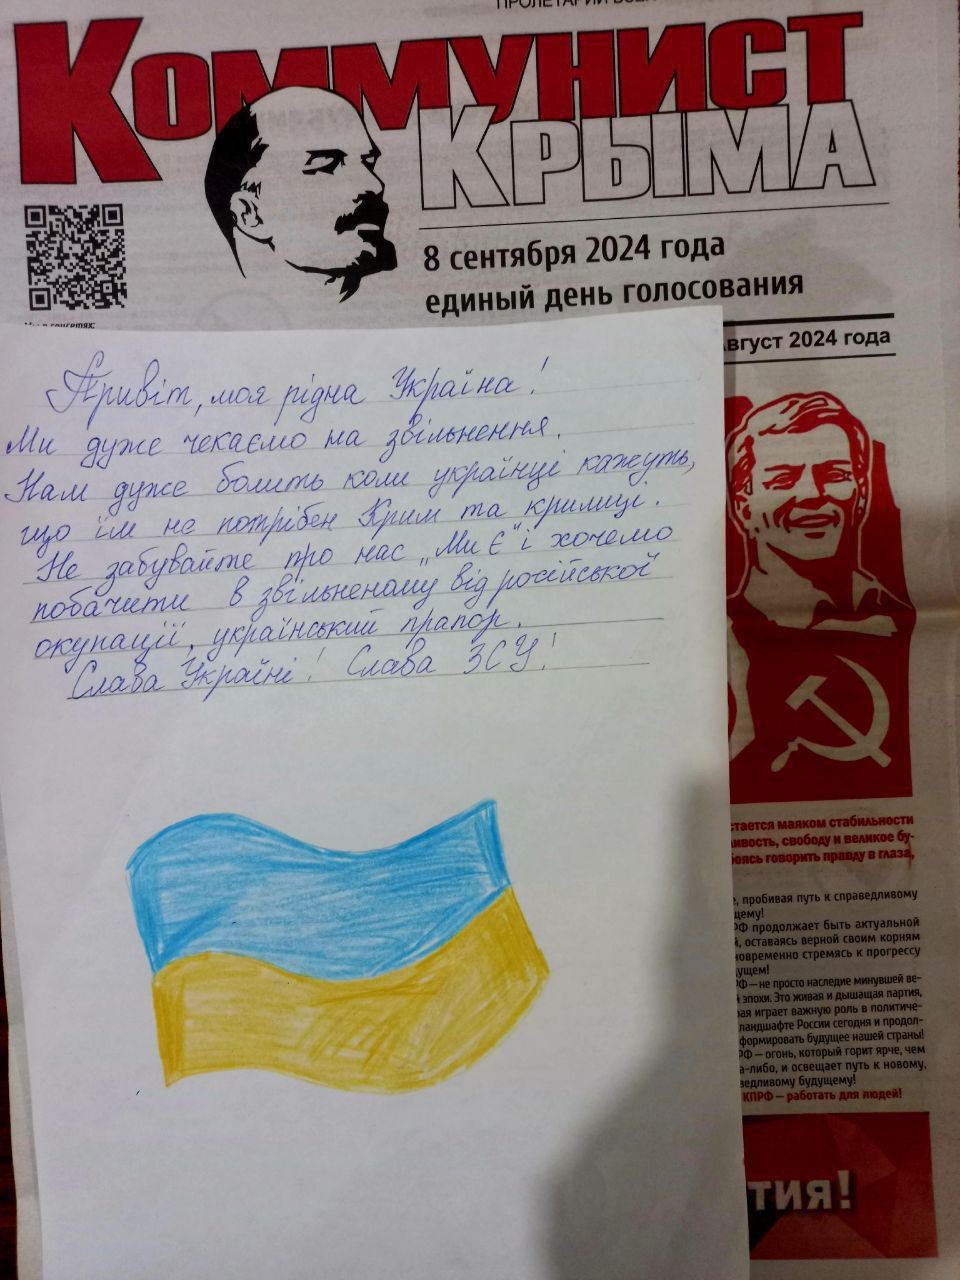 КОММУНИСТ
КРЫМА
8 сентября 2024 года
единый день голосования
Август 2024 года
Привіт, моя рідна Україна!
Ми дуже чекаємо на звільнення.
Нам дуже болить коли українці кажуть,
що їм не потрібен Крим та кримці.
Не забувайте про нас „Ми Є" і хочемо
побачити в звільненому від російської
окупації, український прапор.
Слава Україні! Слава ЗСУ!
маяком стабильности
свободу и великое бу-
говорить правду в глаза,
пробивая путь к справедливому
продолжает быть актуальной
оставаясь верной своим корням
стремясь к прогрессу
— не просто наследие минувшей ве-
эпохи. Это живая и дышащая партия,
играет важную роль в политиче-
ландшафте России сегодня и продол-
формировать будущее нашей страны!
— огонь, который горит ярче, чем
и освещает путь к новому,
будущему!
КПРФ — работать для людей!